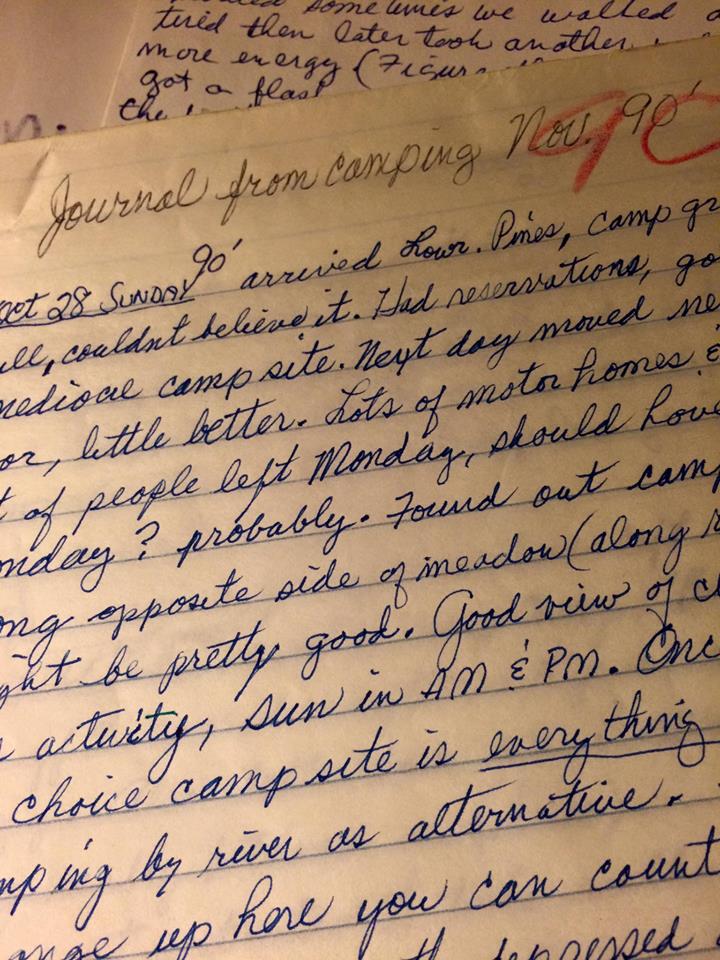 sometimes we walked
tired then later took another
more energy (Figure
got a flash
the
Journal from camping Nov. 90'
90
Oct 28 SUNDAY 90' arrived Lowr. Pines, camp gr
ull, couldnt believe it. Had reservations, go
mediocre camp site. Next day moved ne
or, little better. Lots of motor homes &
t of people left Monday, should have
nday? probably. Found out camp
ong opposite side of meadow (along r
ght be pretty good. Good view of cl
activity, sun in AM & PM. Onc
choice camp site is everything
mping by river as alternative.
ange up here you can count
depressed